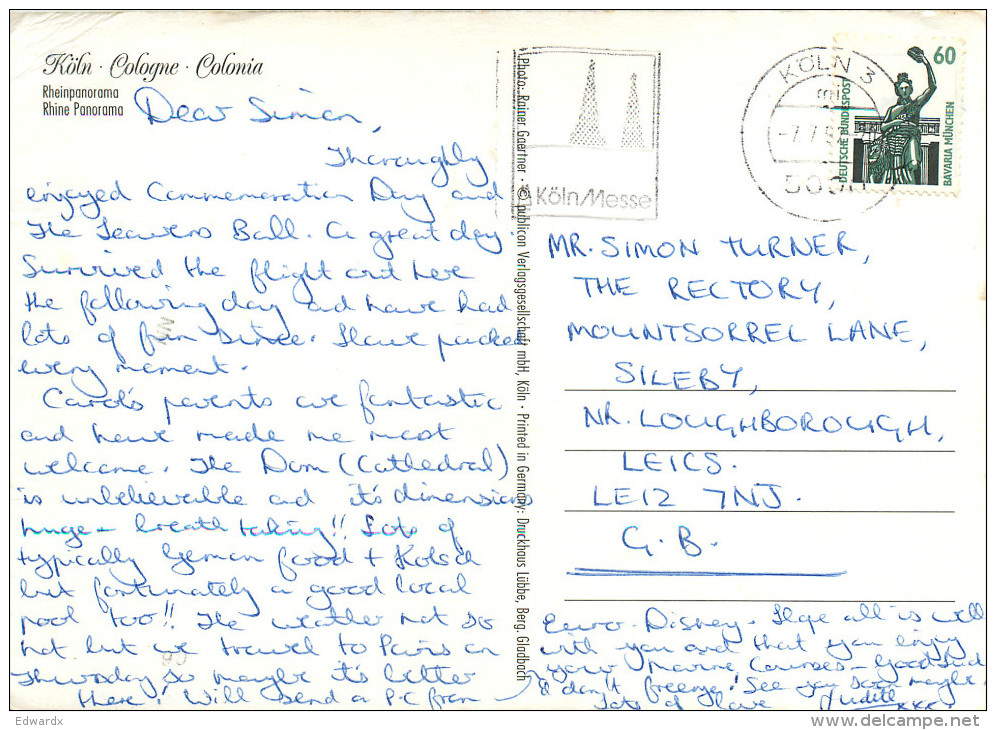 Köln · Cologne · Colonia
Rheinpanorama
Rhine Panorama
Dear Simon,
Thoroughly
enjoyed Commemoration Day and
the Leavers Ball. A great day.
Survived the flight out here
the following day and have had
lots of fun since. Have packed
every moment.
Carol's parents are fantastic
and have made me most
welcome. The Dom (Cathedral)
is unbelievable and it's dimensions
huge - breath taking!! Lots of
typically German food + Kolsch
but fortunately a good local
pool too!! The weather not so
hot but we travel to Paris on
Thursday so maybe it's better
there! Will send a P.C from
Euro-Disney. Hope all is well
with you and that you enjoy
your Marine Courses - Good luck
& don't freeze! See you soon maybe.
Lots of Love Judith xxx
Photo: Rainer Gaertner · © publicon Verlagsgesellschaft mbH, Köln · Printed in Germany: Druckhaus Lübbe, Berg. Gladbach
KölnMesse
KÖLN 3
-7.7
60
DEUTSCHE BUNDESPOST
BAVARIA MÜNCHEN
MR. SIMON TURNER,
THE RECTORY,
MOUNTSORREL LANE,
SILEBY,
NR. LOUGHBOROUGH,
LEICS.
LE12 7NJ.
G.B.
Edwardx
www.delcampe.net